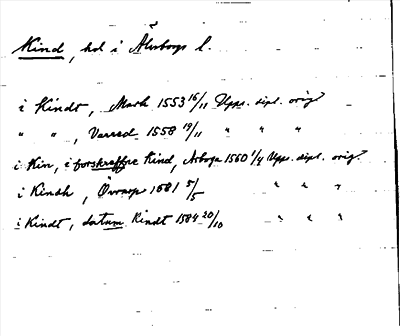 Kind, hd i Älvsborgs l.
i Kindt, Mark 1553 16/11 Upps. dipl. orig
" " , 1558 19/11 " " "
i Kin, i Kind, Arboga 1560 1/4 Upps. dipl. orig.
i Kindh, 1581 5/5 " " "
i Kindt, datum Kindt 1584 20/10 " " "